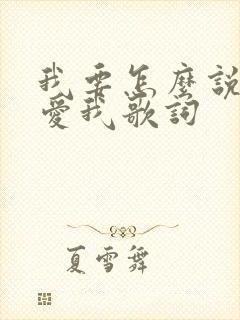 我要怎麼說
愛我歌詞
夏雪舞